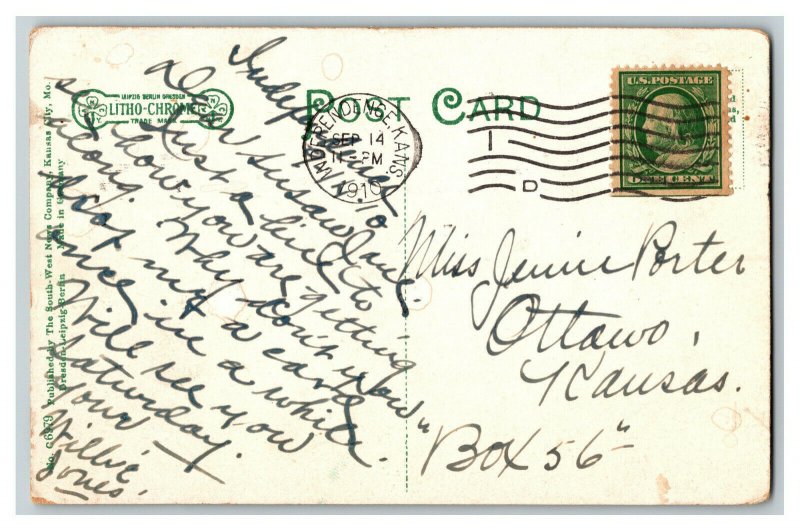 POST CARD
LEIPZIG BERLIN DRESDEN
LITHO-CHROME
TRADE MARK
INDEPENDENCE, KANS.
SEP 14
11 - PM
1910
1
D
U.S. POSTAGE
ONE CENT
No. C6979 Published by The South-West News Company, Kansas City, Mo.
Dresden-Leipzig-Berlin Made in Germany
Independence
9/14/10
Dear Susan Jane.
Just a line to
see how you are getting
along. Why don't you
drop me a card
once in a while.
Will see you
Saturday.
Your
Willie
Jones.
Miss Jennie Porter
Ottawa,
Kansas.
"Box 56"